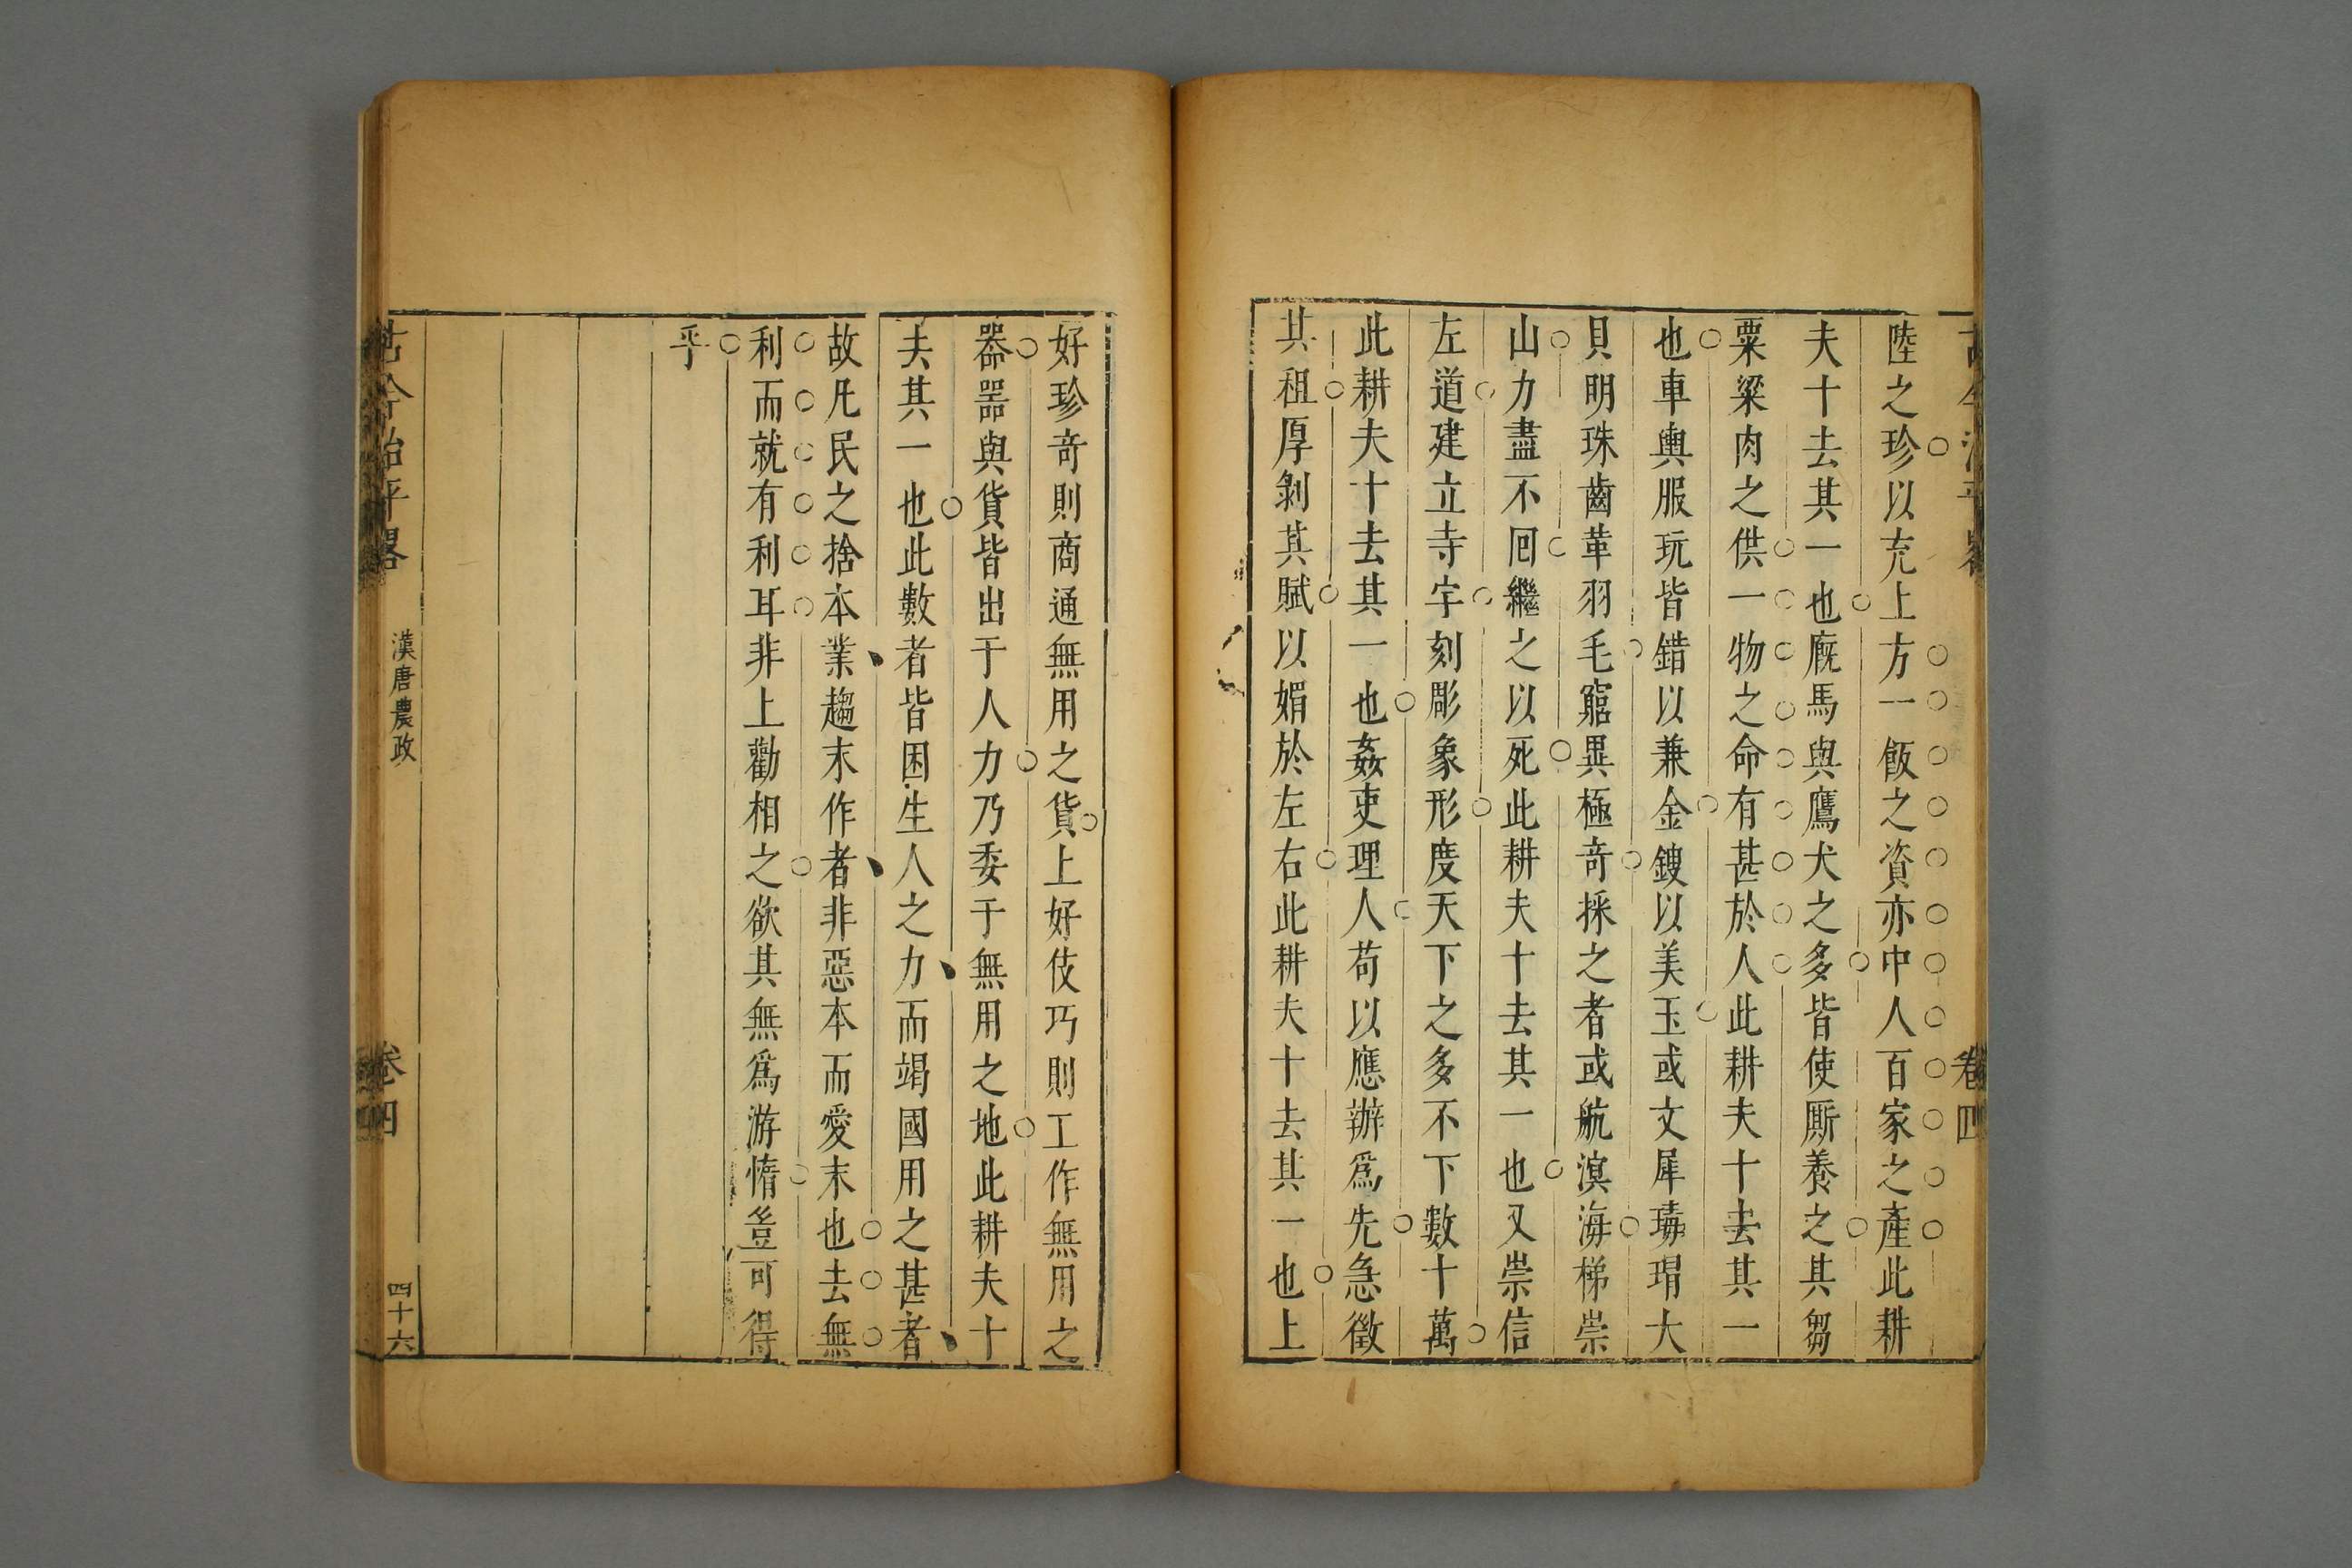 古今治平畧 卷四
陸之珍以充上方一飯之資亦中人百家之產此耕
夫十去其一也廐馬與鷹犬之多皆使厮養之其芻
粟粱肉之供一物之命有甚於人此耕夫十去其一
也車輿服玩皆錯以兼金鎪以美玉或文犀瑇瑁大
貝明珠齒革羽毛窮異極奇採之者或航溟海梯崇
山力盡不囘繼之以死此耕夫十去其一也又崇信
左道建立寺宇刻彫象形度天下之多不下數十萬
此耕夫十去其一也姦吏理人苟以應辦爲先急徵
其租厚剝其賦以媚於左右此耕夫十去其一也上
好珍奇則商通無用之貨上好伎巧則工作無用之
器噐與貨皆出于人力乃委于無用之地此耕夫十
夫其一也此數者皆困生人之力而竭國用之甚者
故凡民之捨本業趨末作者非惡本而愛末也去無
利而就有利耳非上勸相之欲其無爲游惰豈可得
乎
古今治平畧 漢唐農政 卷四 四十六